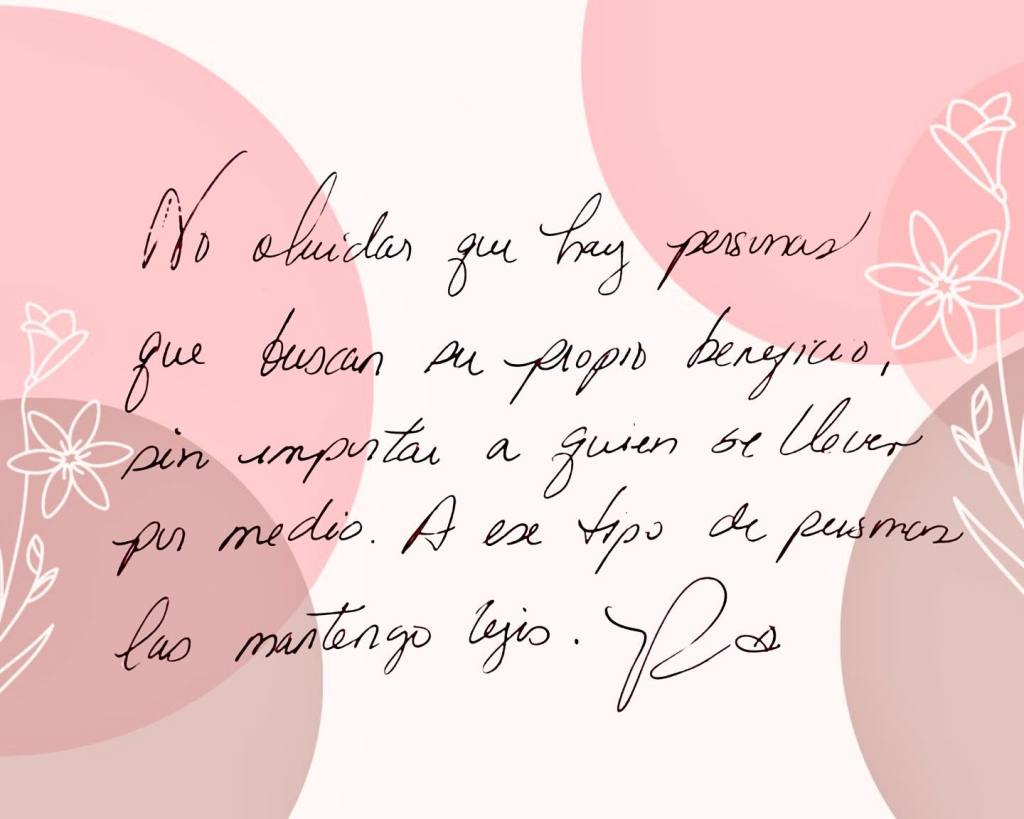 No olvidar que hay personas
que buscan su propio beneficio,
sin importar a quien se lleven
por medio. A ese tipo de personas
las mantengo lejos.